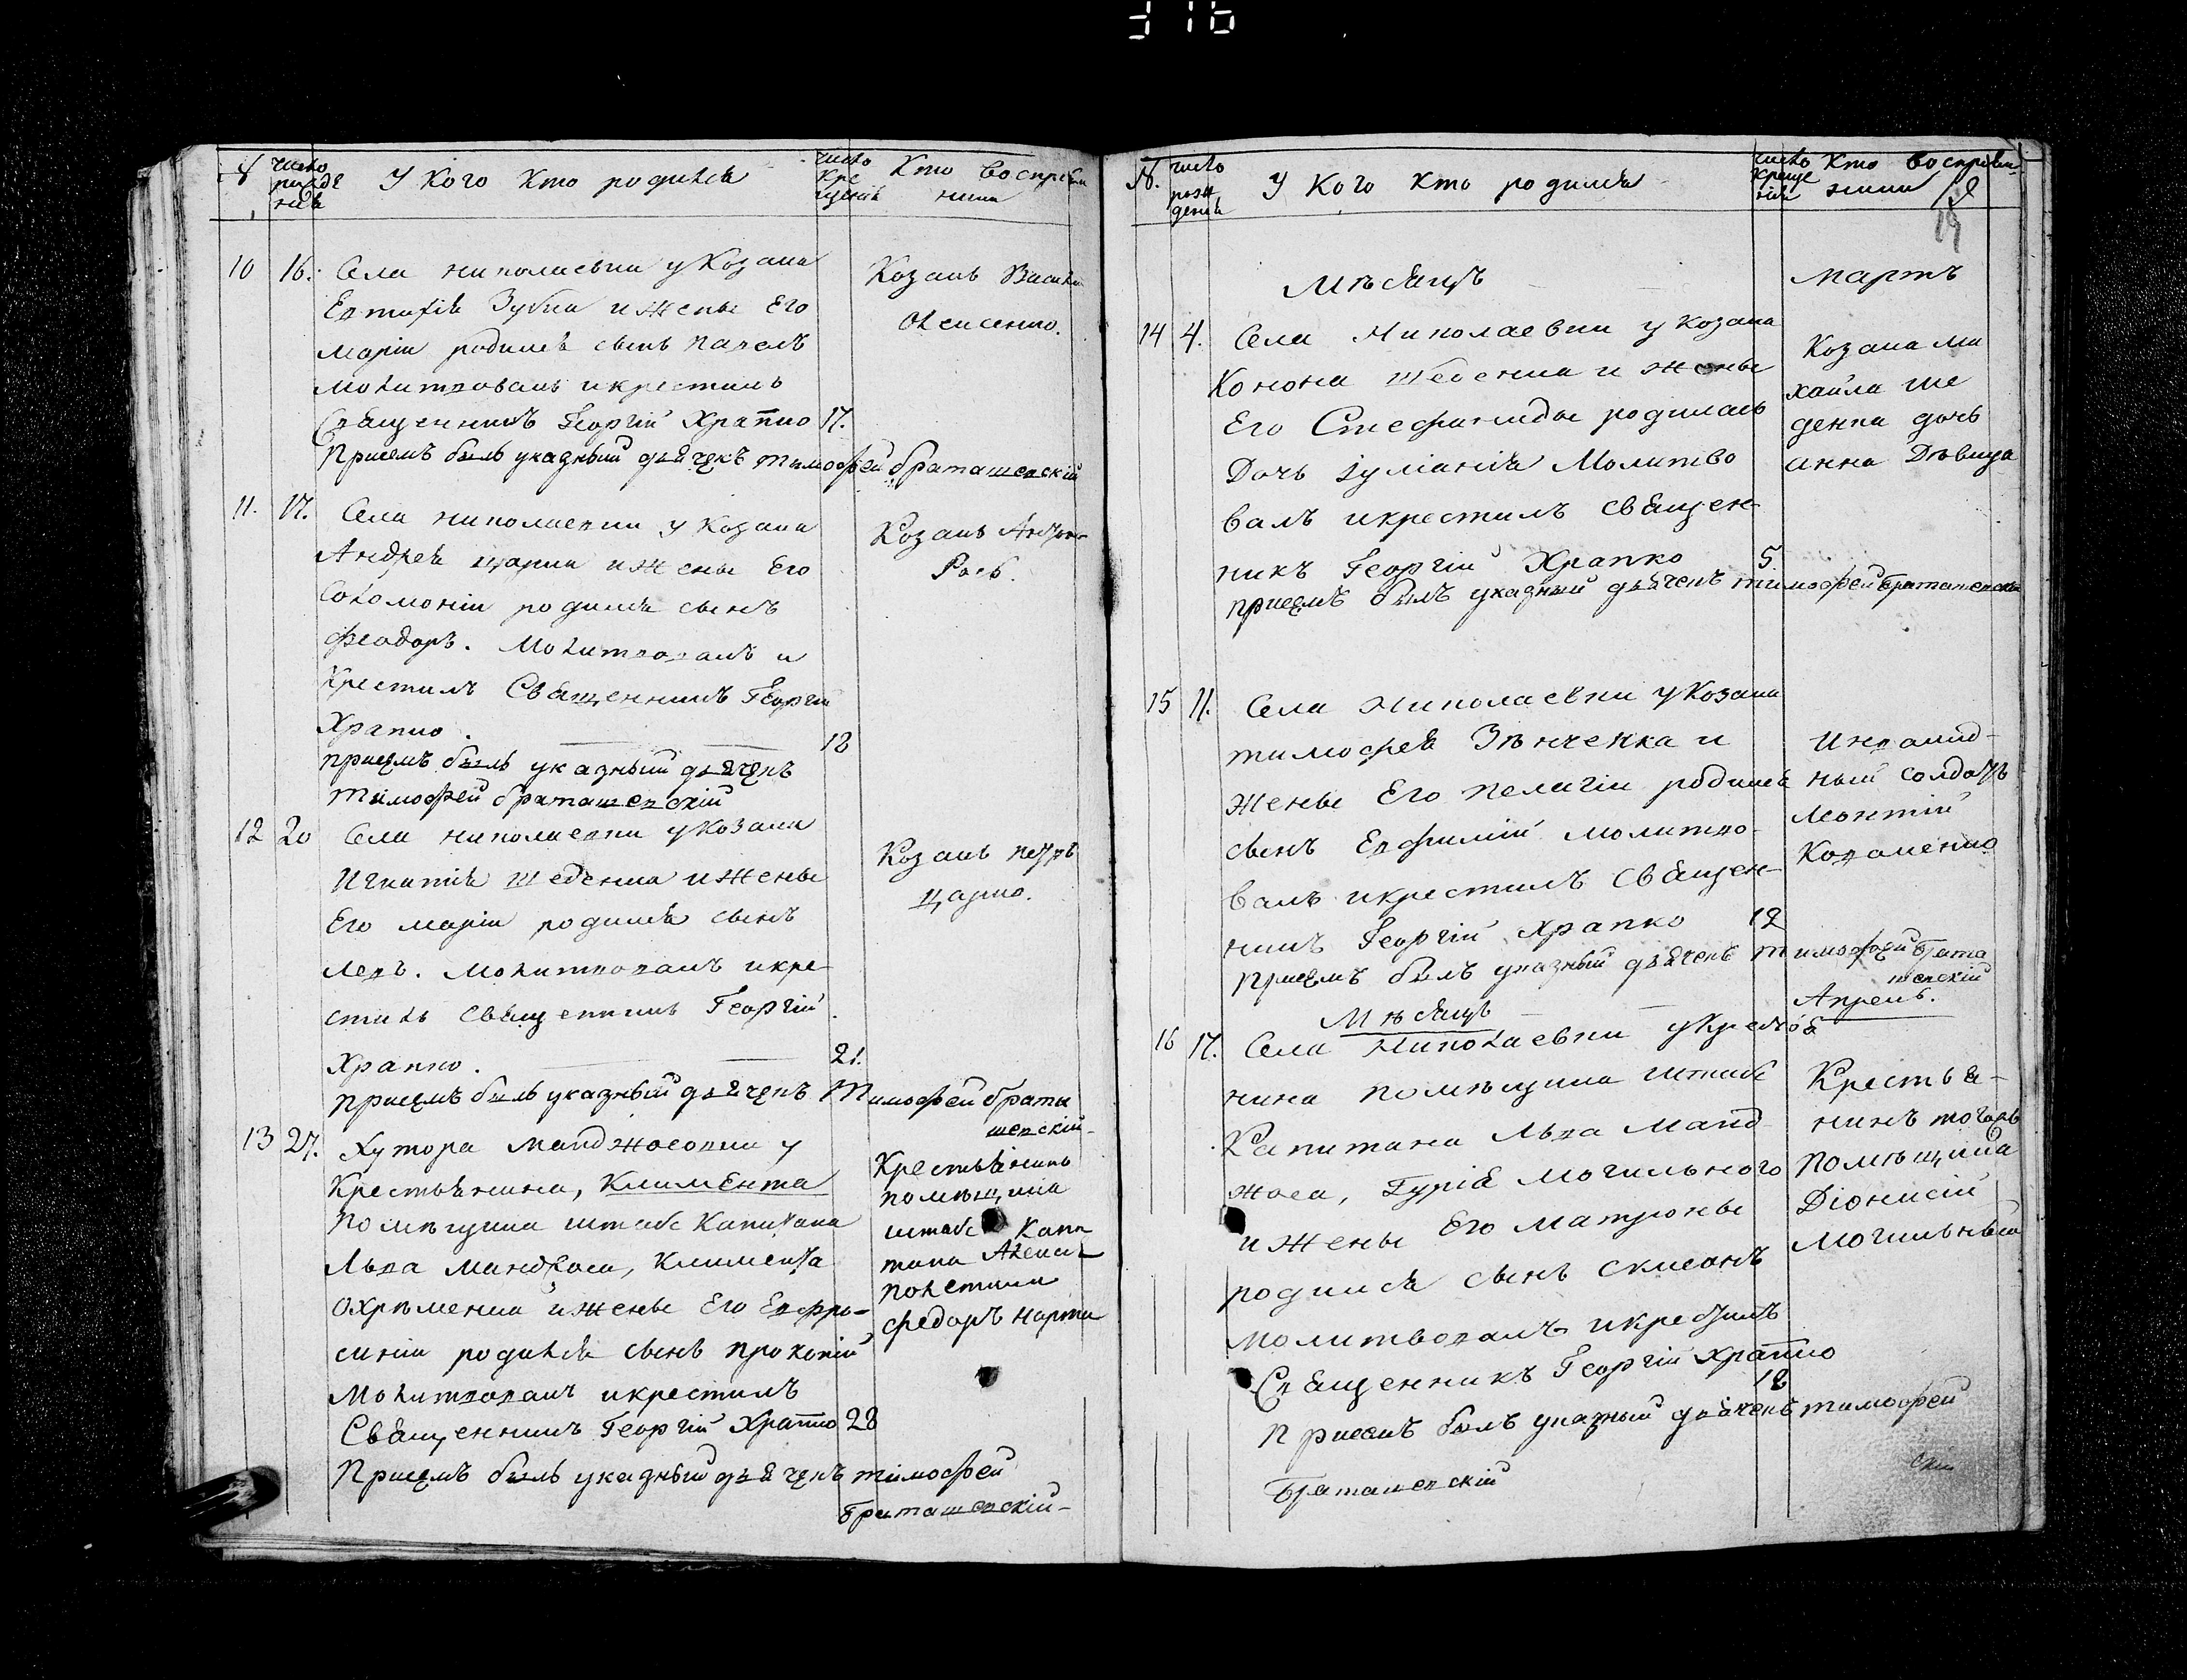 316
№ число рожде нія У кого кто родился число кре щенія Кто воспріем ники
10 16. Села николаевки у козака
Евтихія Зубка и жены Его
маріи родился сынъ павелъ
молитвовалъ и крестилъ
Священникъ Георгій Храпко 17.
Причемъ былъ указный дьячекъ тимофей браташевскій
Козакъ Василій
Олексенко.
11. 17. Села николаевки у козака
Андрея царика и жены Его
Соломоніи родился сынъ
феодоръ. Молитвовалъ и
Крестилъ Священникъ Георгій
Храпко. 18
причемъ былъ указный дьячекъ
тимофей браташевскій
Козакъ
12 20 Села николаевки у козака
Игнатія шеденка и жены
Его маріи родился сынъ
левъ. Молитвовалъ и кре-
стилъ священникъ Георгій
Храпко. 21.
причемъ былъ указный дьячекъ Тимофей брата
шевскій-
Козакъ петръ
царко.
13 27. Хутора манджосовки у
Крестьянина, Климента
помѣщика штабс капитана
Льва манджоса, климента
охрѣменка и жены Его Евфро-
синіи родился сынъ прокопій
Молитвовалъ и крестилъ
Священникъ Георгій Храпко 28
Причемъ былъ указный дьячекъ тимофей
Браташевскій-
Крестьянинъ
помѣщика
штабс капи
тана Алексѣя
полетики
федоръ
№. число рож денія У кого кто родился число креще нія Кто воспріем ники
19
Мѣсяцъ мартъ
14 4. Села Николаевки у козака
Конона шеденка и жены
Его Стефаниды родилась
Дочь Іуліанія Молитво
валъ и крестилъ священ-
никъ Георгій Храпко 5.
причемъ былъ указный дьячекъ тимофей браташевскій
Козака ми
хайла ше
денка дочь
анна Дѣвица
15 11. Села Николаевки у козака
тимофея Зѣнченка и
жены Его пелагіи родился
сынъ Евфимій молитво-
валъ и крестилъ священ-
никъ Георгій Храпко 12
причемъ былъ указный дьячекъ тимофей брата
шевскій
Инвалид-
ный солдатъ
леонтій
Коваленко
Мѣсяцъ Апрель.
16 17. Села Николаевки у крестья
нина помѣщика штабс
Капитана Льва манд-
жоса, Гурія могильного
и жены Его матроны
родился сынъ
молитвовалъ и крестилъ
Священникъ Георгій Храпко
18
Причемъ былъ указный дьячекъ тимофей
Браташевскій
Крестья-
нинъ тогожъ
помѣщика
Діонисій
могильный
скій